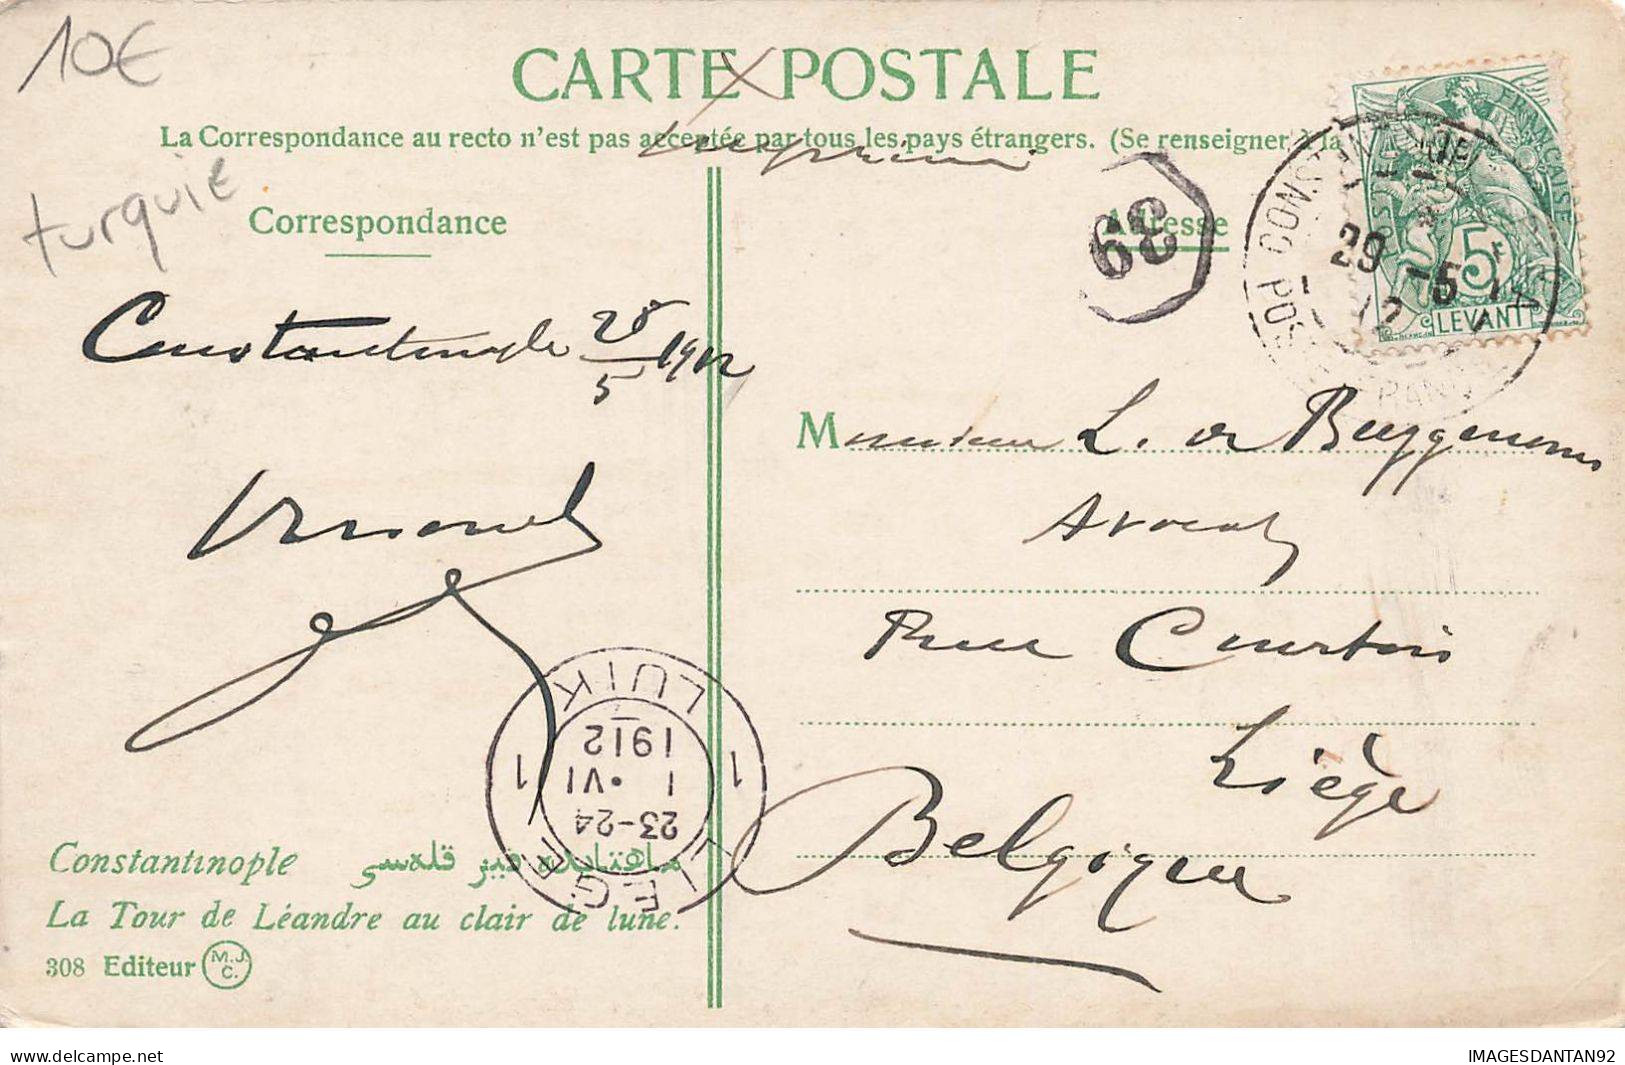 10€
turquie
CARTE POSTALE
La Correspondance au recto n'est pas acceptée par tous les pays étrangers. (Se renseigner à la
Imprimé
Correspondance
Adresse
39
POSTES
FRANÇAISE
5c
LEVANT
29 -5 12
Constantinople 28/5 1912
Monsieur L. de Buggenoms
Avocat
Rue Courtois
Liège
Belgique
LUIK
1 1
1912
1 · VI
23-24
LIEGE
Constantinople ماهتابده قیز قله‌سی
La Tour de Léandre au clair de lune.
308 Editeur M.J.C.
www.delcampe.net
IMAGESDANTAN92